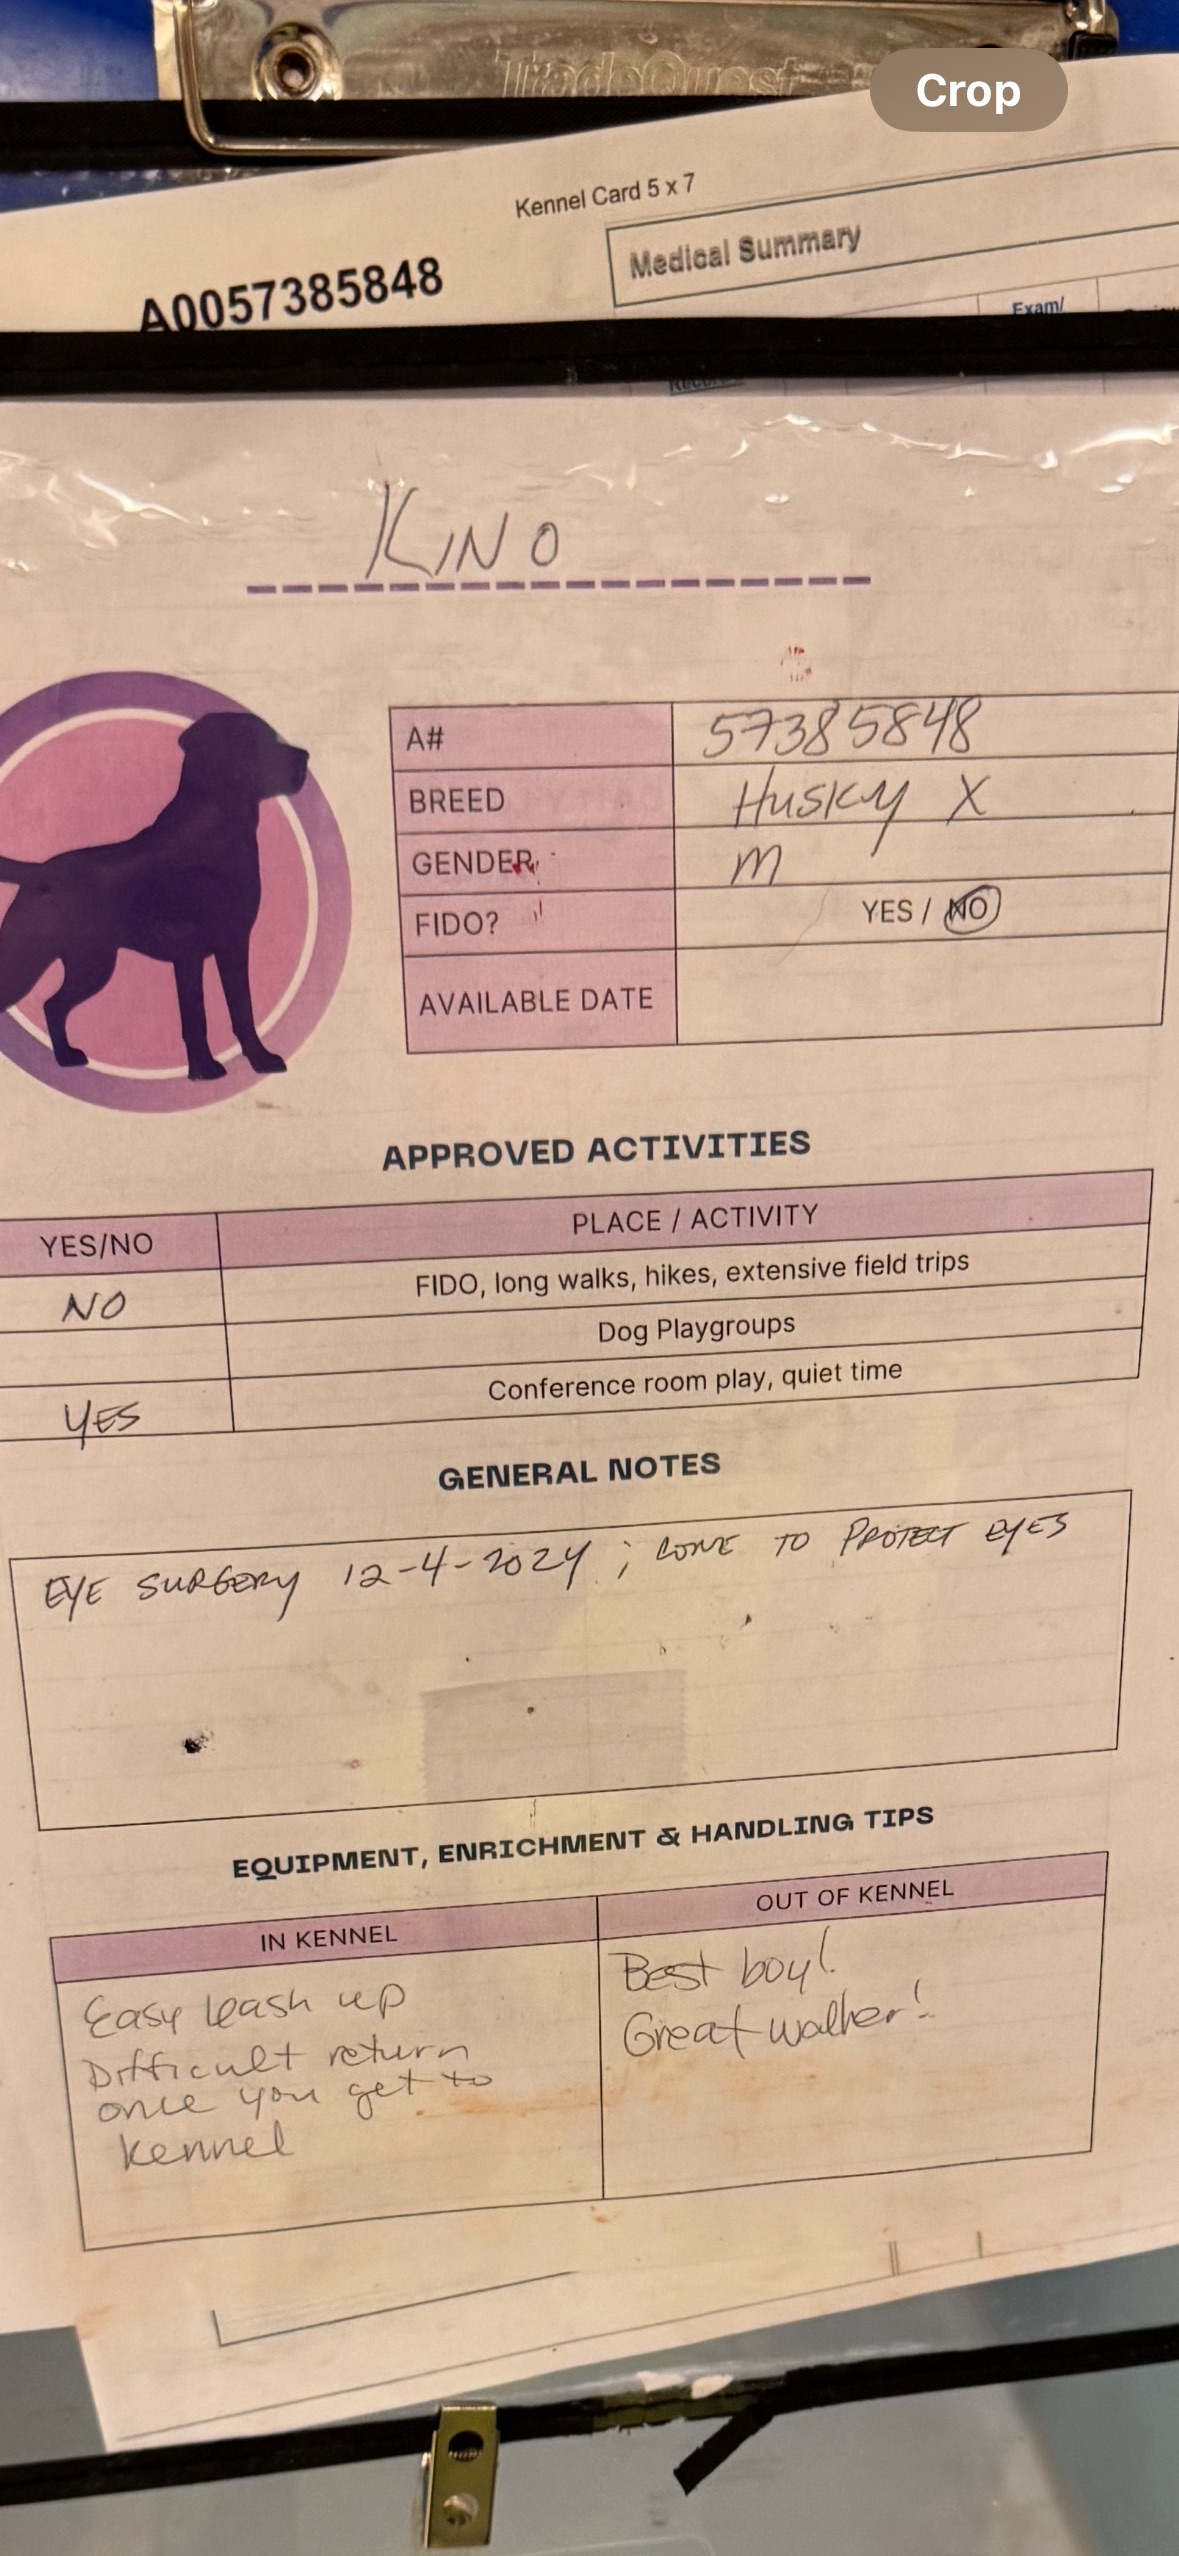 TradeQuest
Crop
Kennel Card 5 x 7
Medical Summary
A0057385848
Exam/
KINO
A# 57385848
BREED Husky X
GENDER M
FIDO? YES / NO
AVAILABLE DATE
APPROVED ACTIVITIES
YES/NO PLACE / ACTIVITY
NO FIDO, long walks, hikes, extensive field trips
Dog Playgroups
YES Conference room play, quiet time
GENERAL NOTES
EYE SURGERY 12-4-2024 ; CONE TO PROTECT EYES
EQUIPMENT, ENRICHMENT & HANDLING TIPS
IN KENNEL
Easy leash up
Difficult return
once you get to
kennel
OUT OF KENNEL
Best boy!
Great walker!